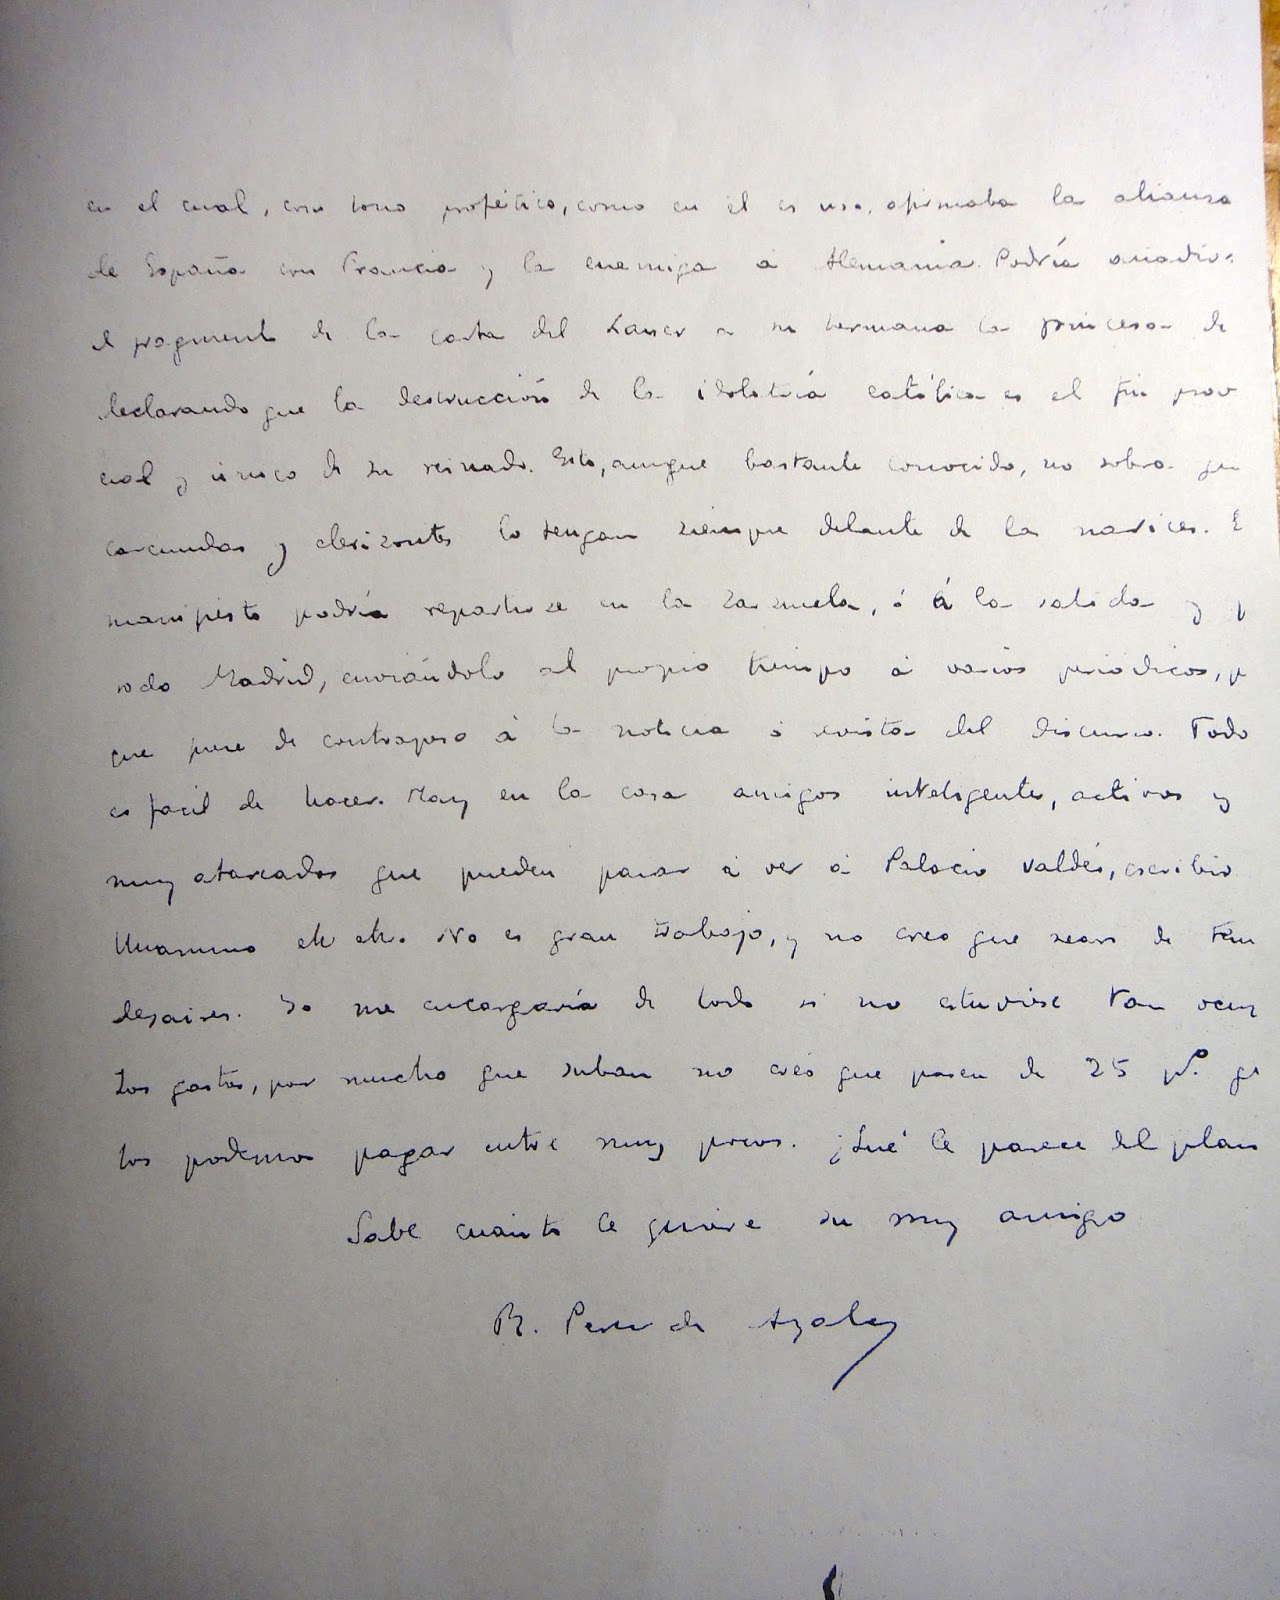 en el cual, con tono profético, como en él es uso, afirmaba la alianza
de España con Francia y la enemiga á Alemania. Podría añadirs
el fragment de la carta del Kaiser a su hermana la princesa de
declarando que la destrucción de la idolatría católica es el fin prov
cial y único de su reinado. Esto, aunque bastante conocido, no sobra qu
carcundas y clerizontes lo tengan siempre delante de la narices. E
manifiesto podría repartirse en la Zarzuela, ó á la salida y p
todo Madrid, enviándolo al propio tiempo á varios periódicos, p
que fuese de contrapeso á la noticia ó revista del discurso. Todo
es facil de hacer. Hay en la casa amigos inteligentes, activos y
muy atareados que pueden pasar á ver á Palacio Valdés, escribir
Unamuno etc etc. No es gran trabajo, y no creo que sean de tem
desaires. Yo me encargaría de todo si no estuviese tan ocup
Los gastos, por mucho que suban no creo que pasen de 25 ps. qe
los podemos pagar entre muy pocos. ¿Qué le parece del plan
Sabe cuánto le quiere su muy amigo
R. Perez de Ayala